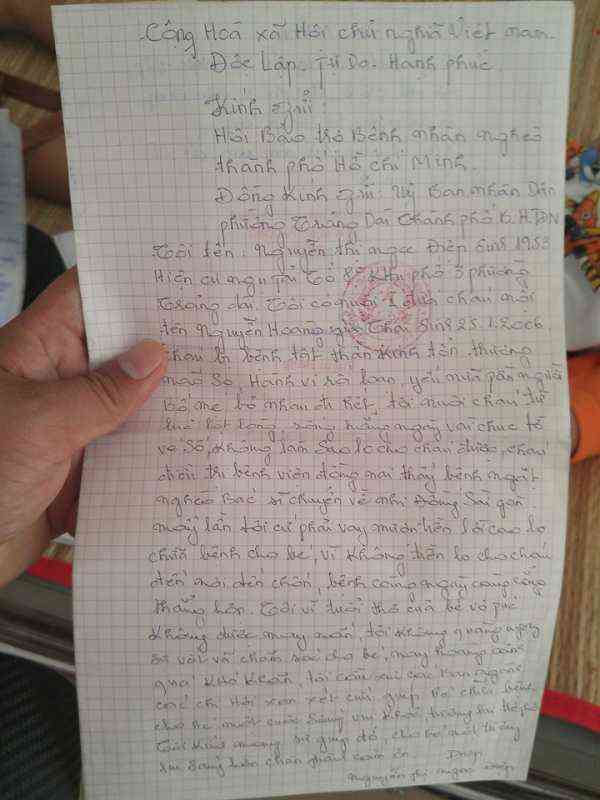 Cộng Hoà xã Hội chủ nghĩa Việt nam.
Độc Lập. Tự Do. Hạnh phúc.
Kính gửi:
Hội Bảo trợ Bệnh nhân nghèo
thành phố Hồ chí Minh.
Đồng Kính gửi: Uỷ Ban nhân Dân
phường Trảng Dài thành phố
Tôi tên: nguyễn thị ngọc Điệp sinh 1953
Hiện cư ngụ tại Tổ Khu phố 3 phường
Trảng dài. Tôi có nuôi cháu
tên nguyễn Hoàng gia Thái sinh 25.1.2006
cháu bị bệnh tật thần kinh tổn thương
não Hành vi rối loạn, yếu nửa người
Bố mẹ bỏ nhau đi hết, tôi nuôi cháu từ
lọt lòng, sống hằng ngày vài chục tờ
vé số, không làm sao lo cho cháu được, cháu
đi bệnh viện đồng nai thấy bệnh ngặt
nghèo Bác sĩ chuyển về nhi Đồng Sài gòn
mấy lần tôi cứ phải vay mướn tiền lời cao lo
chữa bệnh cho bé, vì không tiền lo cho cháu
đến nơi đến chốn, bệnh càng ngày càng
hơn. Tôi vì tuổi thơ của bé vô phúc
không được may mắn, tôi không quảng ngại
vất vả chăm sóc cho bé, nay hoàng cảnh
quá khó khăn, tôi cầu xin các ban ngành
các chị Hội xem xét cứu giúp chữa bệnh
cho bé một cuộc sống vui
Tôi mong sự giúp đỡ, cho bé
chân thành cám ơn.
Điệp
nguyễn thị ngọc Điệp